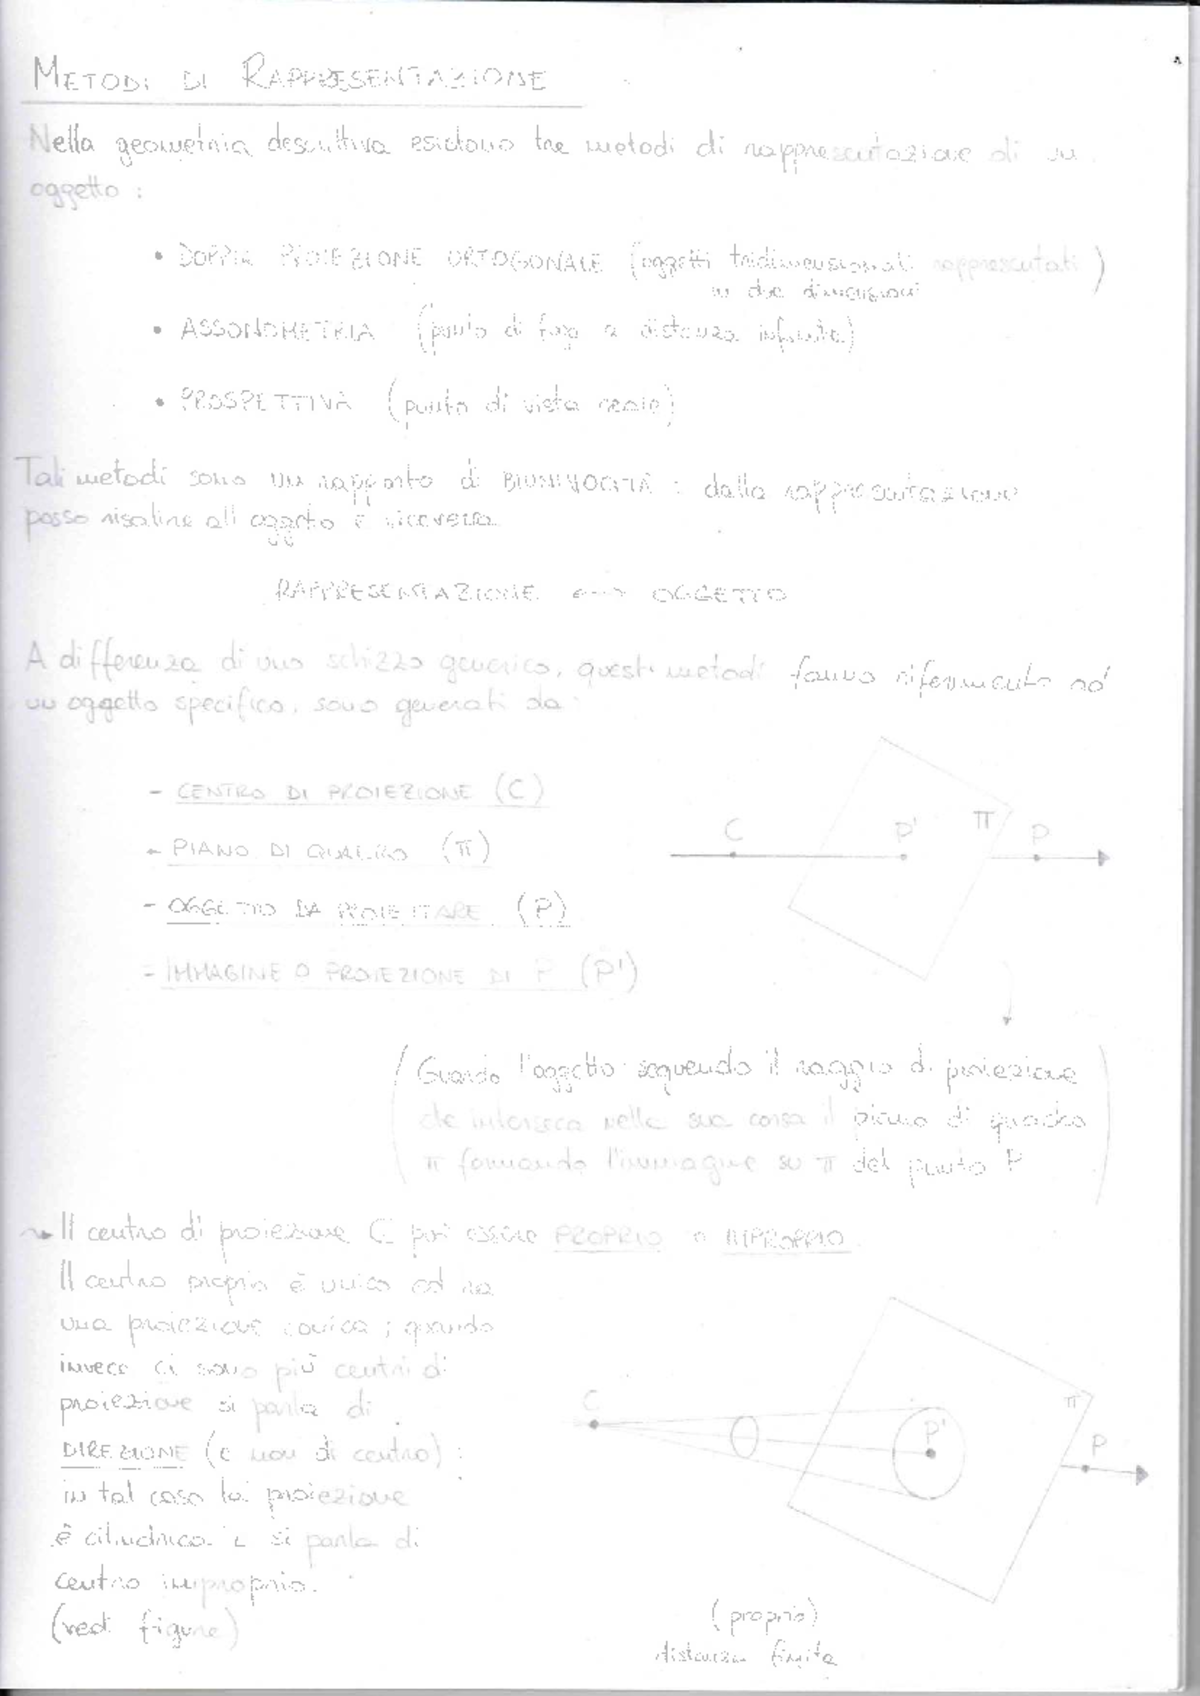 METODI DI RAPPRESENTAZIONE
Nella geometria descrittiva esistono tre metodi di rappresentazione di un
oggetto :
• DOPPIA PROIEZIONE ORTOGONALE (oggetti tridimensionali rappresentati)
in due dimensioni
• ASSONOMETRIA (punto di fuga a distanza infinita)
• PROSPETTIVA (punto di vista reale)
Tali metodi sono un rapporto di BIUNIVOCITÀ : dalla rappresentazione
posso risalire all'oggetto e viceversa
RAPPRESENTAZIONE <--> OGGETTO
A differenza di uno schizzo generico, questi metodi fanno riferimento ad
un oggetto specifico, sono generati da:
- CENTRO DI PROIEZIONE (C)
- PIANO DI QUADRO (π)
- OGGETTO DA PROIETTARE (P)
- IMMAGINE O PROIEZIONE DI P (P')
C P' π P
(Guardo l'oggetto seguendo il raggio di proiezione
che interseca nella sua corsa il piano di quadro
π formando l'immagine su π del punto P)
Il centro di proiezione C può essere PROPRIO o IMPROPRIO.
Il centro proprio è unico ed ha
una proiezione conica ; quando
invece ci sono più centri di
proiezione si parla di
DIREZIONE (e non di centro) :
in tal caso la proiezione
è cilindrica e si parla di
centro improprio.
(vedi figure)
C P' π P
(proprio)
distanza finita